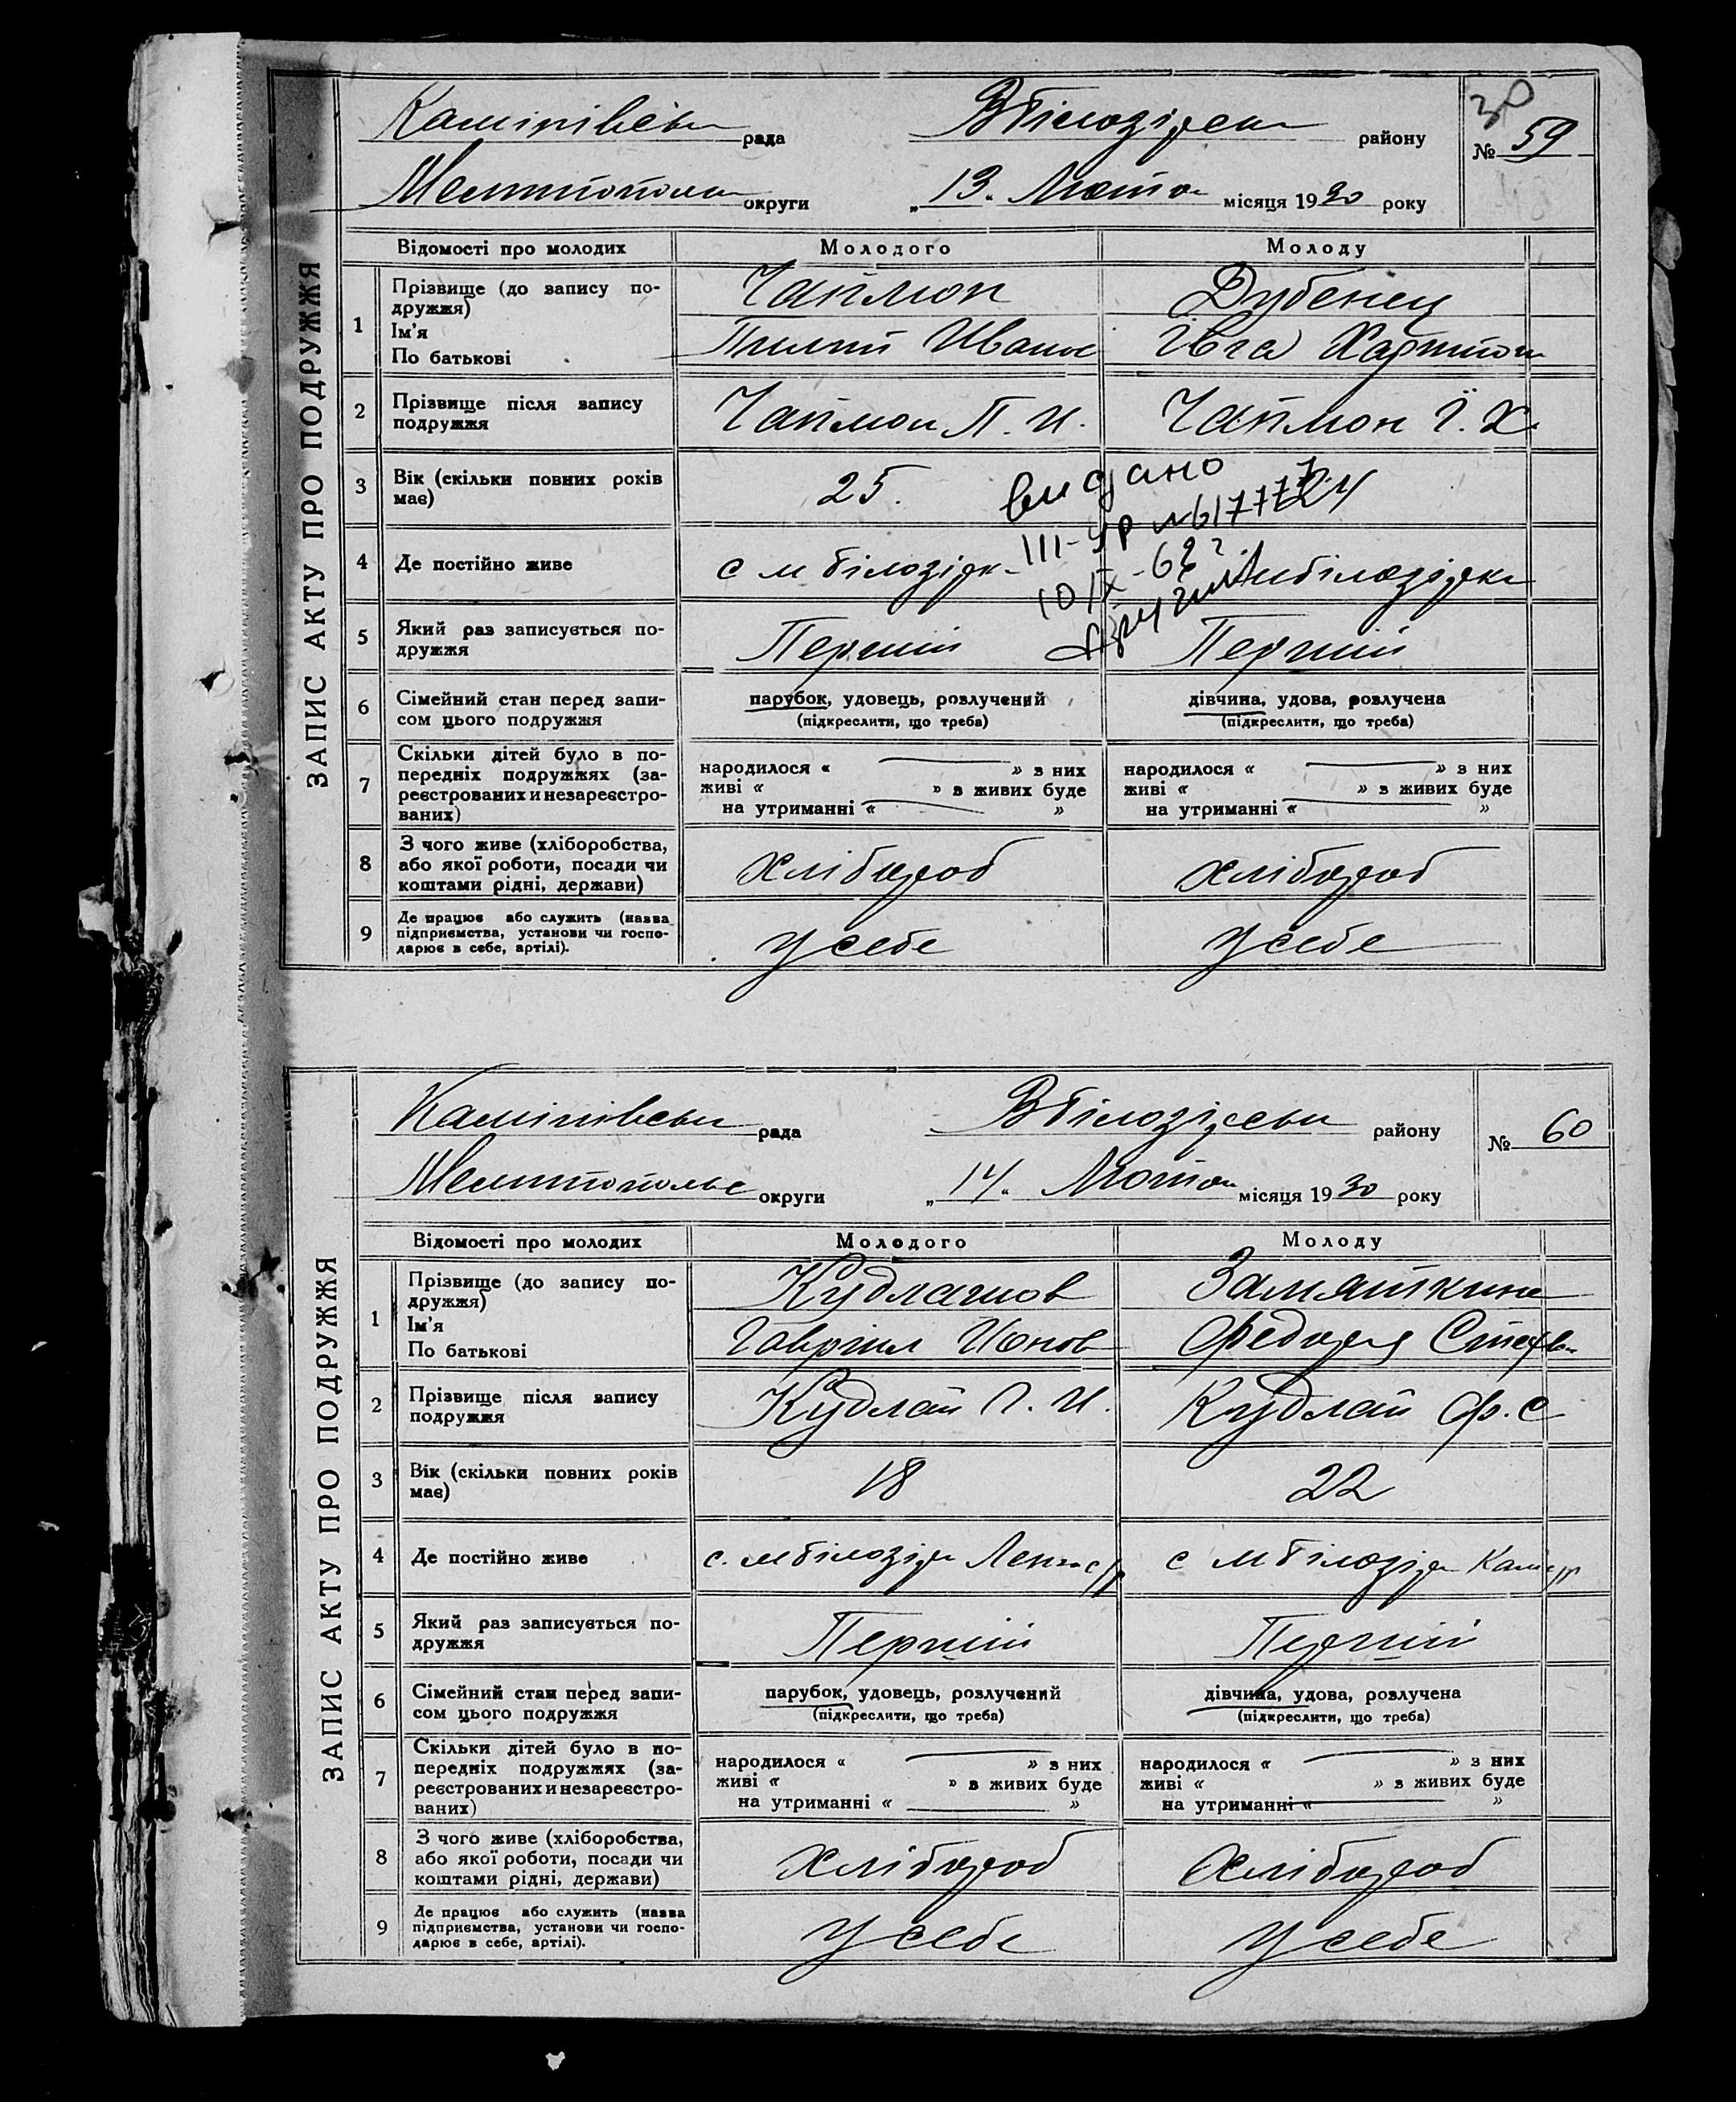 30
рада В Білозірськ району № 59
Мелитополь округи „13“ Лютого місяця 1930 року
ЗАПИС АКТУ ПРО ПОДРУЖЖЯ
Відомості про молодих Молодого Молоду
1 Прізвище (до запису по- Чаплюн Дубенец
дружжя)
Ім'я
По батькові Пилип Иванов Ївга Харитон
2 Прізвище після запису Чаплюн П. И. Чаплюн Ї. Х.
подружжя
3 Вік (скільки повних років 25.
має)
видано
III-УР №
10 IX - 68 г
4 Де постійно живе с м Білозірк м Білозірка
5 Який раз записується по- Перший Перший
дружжя
6 Сімейний стан перед запи- парубок, удовець, розлучений дівчина, удова, розлучена
сом цього подружжя (підкреслити, що треба) (підкреслити, що треба)
7 Скільки дітей було в по-
передніх подружжях (за- народилося « » з них народилося « » з них
реєстрованих и незареєстро- живі « » з живих буде живі « » з живих буде
ваних) на утриманні « » на утриманні « »
8 З чого живе (хліборобства,
або якої роботи, посади чи хлібороб хлібороб
коштами рідні, держави)
9 Де працює або служить (назва
підприємства, установи чи госпо- у себе у себе
дарює в себе, артілі).
рада В Білозірськ району № 60
Мелитопольс округи „14“ Лютого місяця 1930 року
ЗАПИС АКТУ ПРО ПОДРУЖЖЯ
Відомості про молодих Молодого Молоду
1 Прізвище (до запису по- Замяткина
дружжя)
Ім'я
По батькові Гаврил Ионов Федора Степ
2 Прізвище після запису Кудлай Г. И. Кудлай Ф. С
подружжя
3 Вік (скільки повних років 18 22
має)
4 Де постійно живе с. м Білозір с м Білозір
5 Який раз записується по- Перший Перший
дружжя
6 Сімейний стан перед запи- парубок, удовець, розлучений дівчина, удова, розлучена
сом цього подружжя (підкреслити, що треба) (підкреслити, що треба)
7 Скільки дітей було в по-
передніх подружжях (за- народилося « » з них народилося « » з них
реєстрованих и незареєстро- живі « » з живих буде живі « » з живих буде
ваних) на утриманні « » на утриманні « »
8 З чого живе (хліборобства,
або якої роботи, посади чи хлібороб хлібороб
коштами рідні, держави)
9 Де працює або служить (назва
підприємства, установи чи госпо- у себе у себе
дарює в себе, артілі).